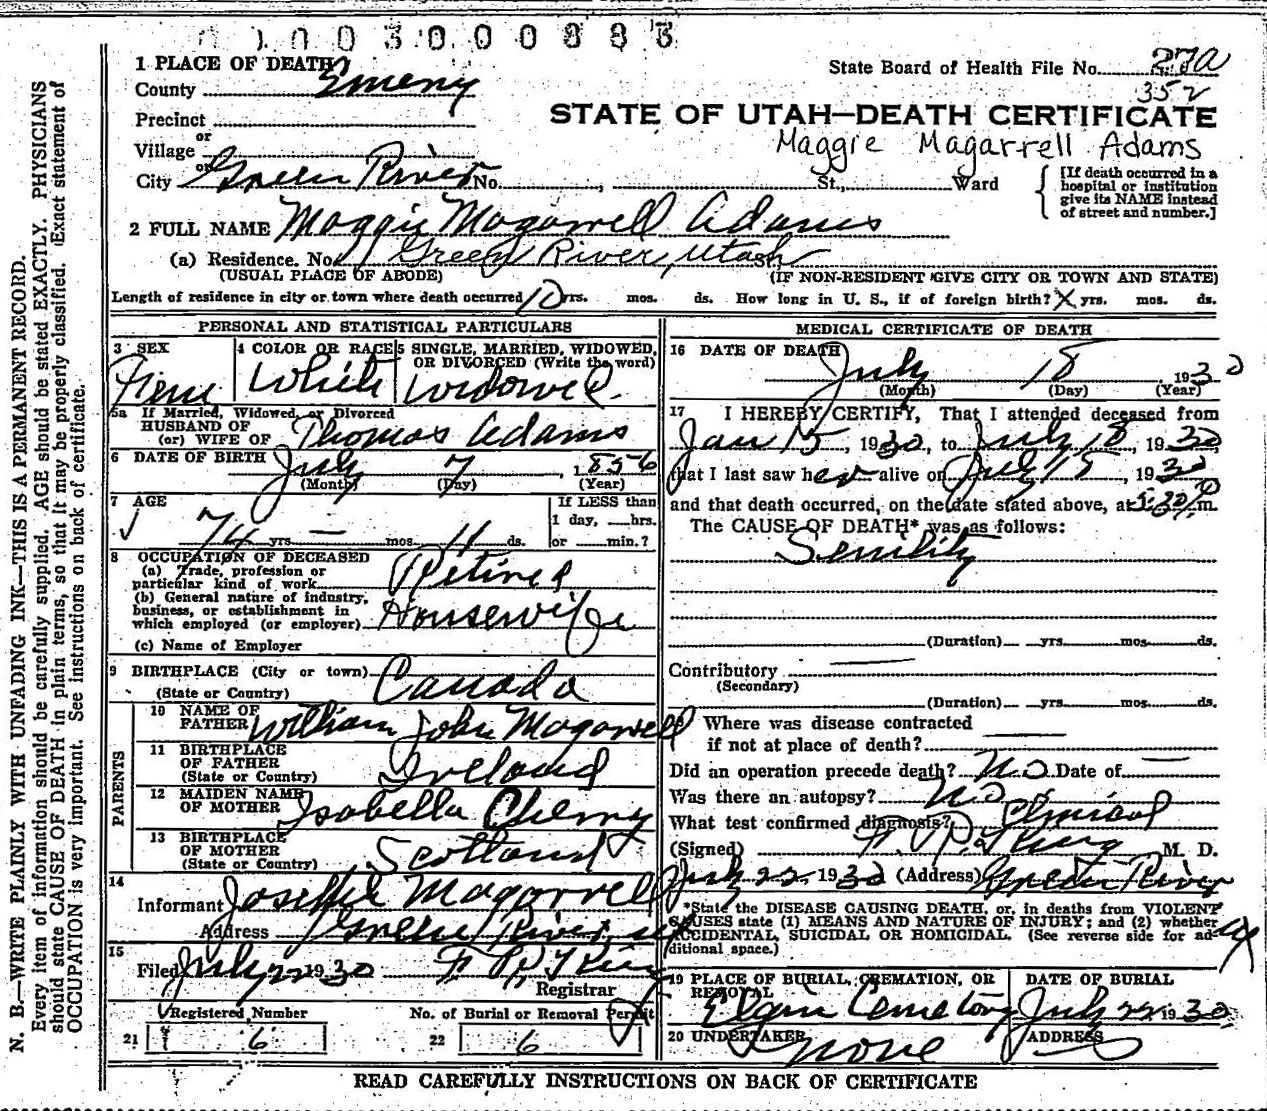 0 1 0 0 3 0 0 0 8 8 3
1 PLACE OF DEATH
State Board of Health File No. 27a
352
County Emery
STATE OF UTAH—DEATH CERTIFICATE
Precinct
Maggie Magarrell Adams
or
Village
or
City Green River No. , St., Ward
[If death occurred in a hospital or institution give its NAME instead of street and number.]
2 FULL NAME Maggie Magarrell Adams
(a) Residence. No. Green River, Utah
(USUAL PLACE OF ABODE) (IF NON-RESIDENT GIVE CITY OR TOWN AND STATE)
Length of residence in city or town where death occurred 10 yrs. mos. ds. How long in U. S., if of foreign birth? X yrs. mos. ds.
PERSONAL AND STATISTICAL PARTICULARS
3 SEX 4 COLOR OR RACE 5 SINGLE, MARRIED, WIDOWED, OR DIVORCED (Write the word)
Fem White Widowed.
5a If Married, Widowed, or Divorced
HUSBAND OF
(or) WIFE OF Thomas Adams
6 DATE OF BIRTH July 7 , 1856
(Month) (Day) (Year)
7 AGE If LESS than
1 day, hrs.
74 yrs. — mos. 11 ds. or min.?
8 OCCUPATION OF DECEASED
(a) Trade, profession or
particular kind of work Retired
(b) General nature of industry,
business, or establishment in
which employed (or employer) Housewife
(c) Name of Employer
9 BIRTHPLACE (City or town)
(State or Country) Canada
PARENTS
10 NAME OF
FATHER William John Magarrell
11 BIRTHPLACE
OF FATHER
(State or Country) Ireland
12 MAIDEN NAME
OF MOTHER Isabella Cherry
13 BIRTHPLACE
OF MOTHER
(State or Country) Scotland
14
Informant Magarrell
Address Green River, U
15
Filed July 22 1930 F P King
Registrar
Registered Number No. of Burial or Removal Permit
21 6 22 6
MEDICAL CERTIFICATE OF DEATH
16 DATE OF DEATH
July 18 , 1930
(Month) (Day) (Year)
17 I HEREBY CERTIFY, That I attended deceased from
Jan 15, 1930, to July 18, 1930,
that I last saw her alive on July 15, 1930
and that death occurred, on the date stated above, at 5:30 P m.
The CAUSE OF DEATH* was as follows:
Senility
(Duration) yrs. mos. ds.
Contributory
(Secondary)
(Duration) yrs. mos. ds.
Where was disease contracted
if not at place of death?
Did an operation precede death? No Date of —
Was there an autopsy? No
What test confirmed diagnosis? Clinical
(Signed) F. P. King M. D.
July 22 1930 (Address) Green River
*State the DISEASE CAUSING DEATH, or, in deaths from VIOLENT
CAUSES state (1) MEANS AND NATURE OF INJURY; and (2) whether
ACCIDENTAL, SUICIDAL OR HOMICIDAL. (See reverse side for ad-
ditional space.)
19 PLACE OF BURIAL, CREMATION, OR REMOVAL DATE OF BURIAL
Elgin Cemetery July 22 1930
20 UNDERTAKER ADDRESS
none
READ CAREFULLY INSTRUCTIONS ON BACK OF CERTIFICATE
N. B.—WRITE PLAINLY WITH UNFADING INK—THIS IS A PERMANENT RECORD.
Every item of information should be carefully supplied. AGE should be stated EXACTLY. PHYSICIANS
should state CAUSE OF DEATH in plain terms, so that it may be properly classified. Exact statement of
OCCUPATION is very important. See instructions on back of certificate.